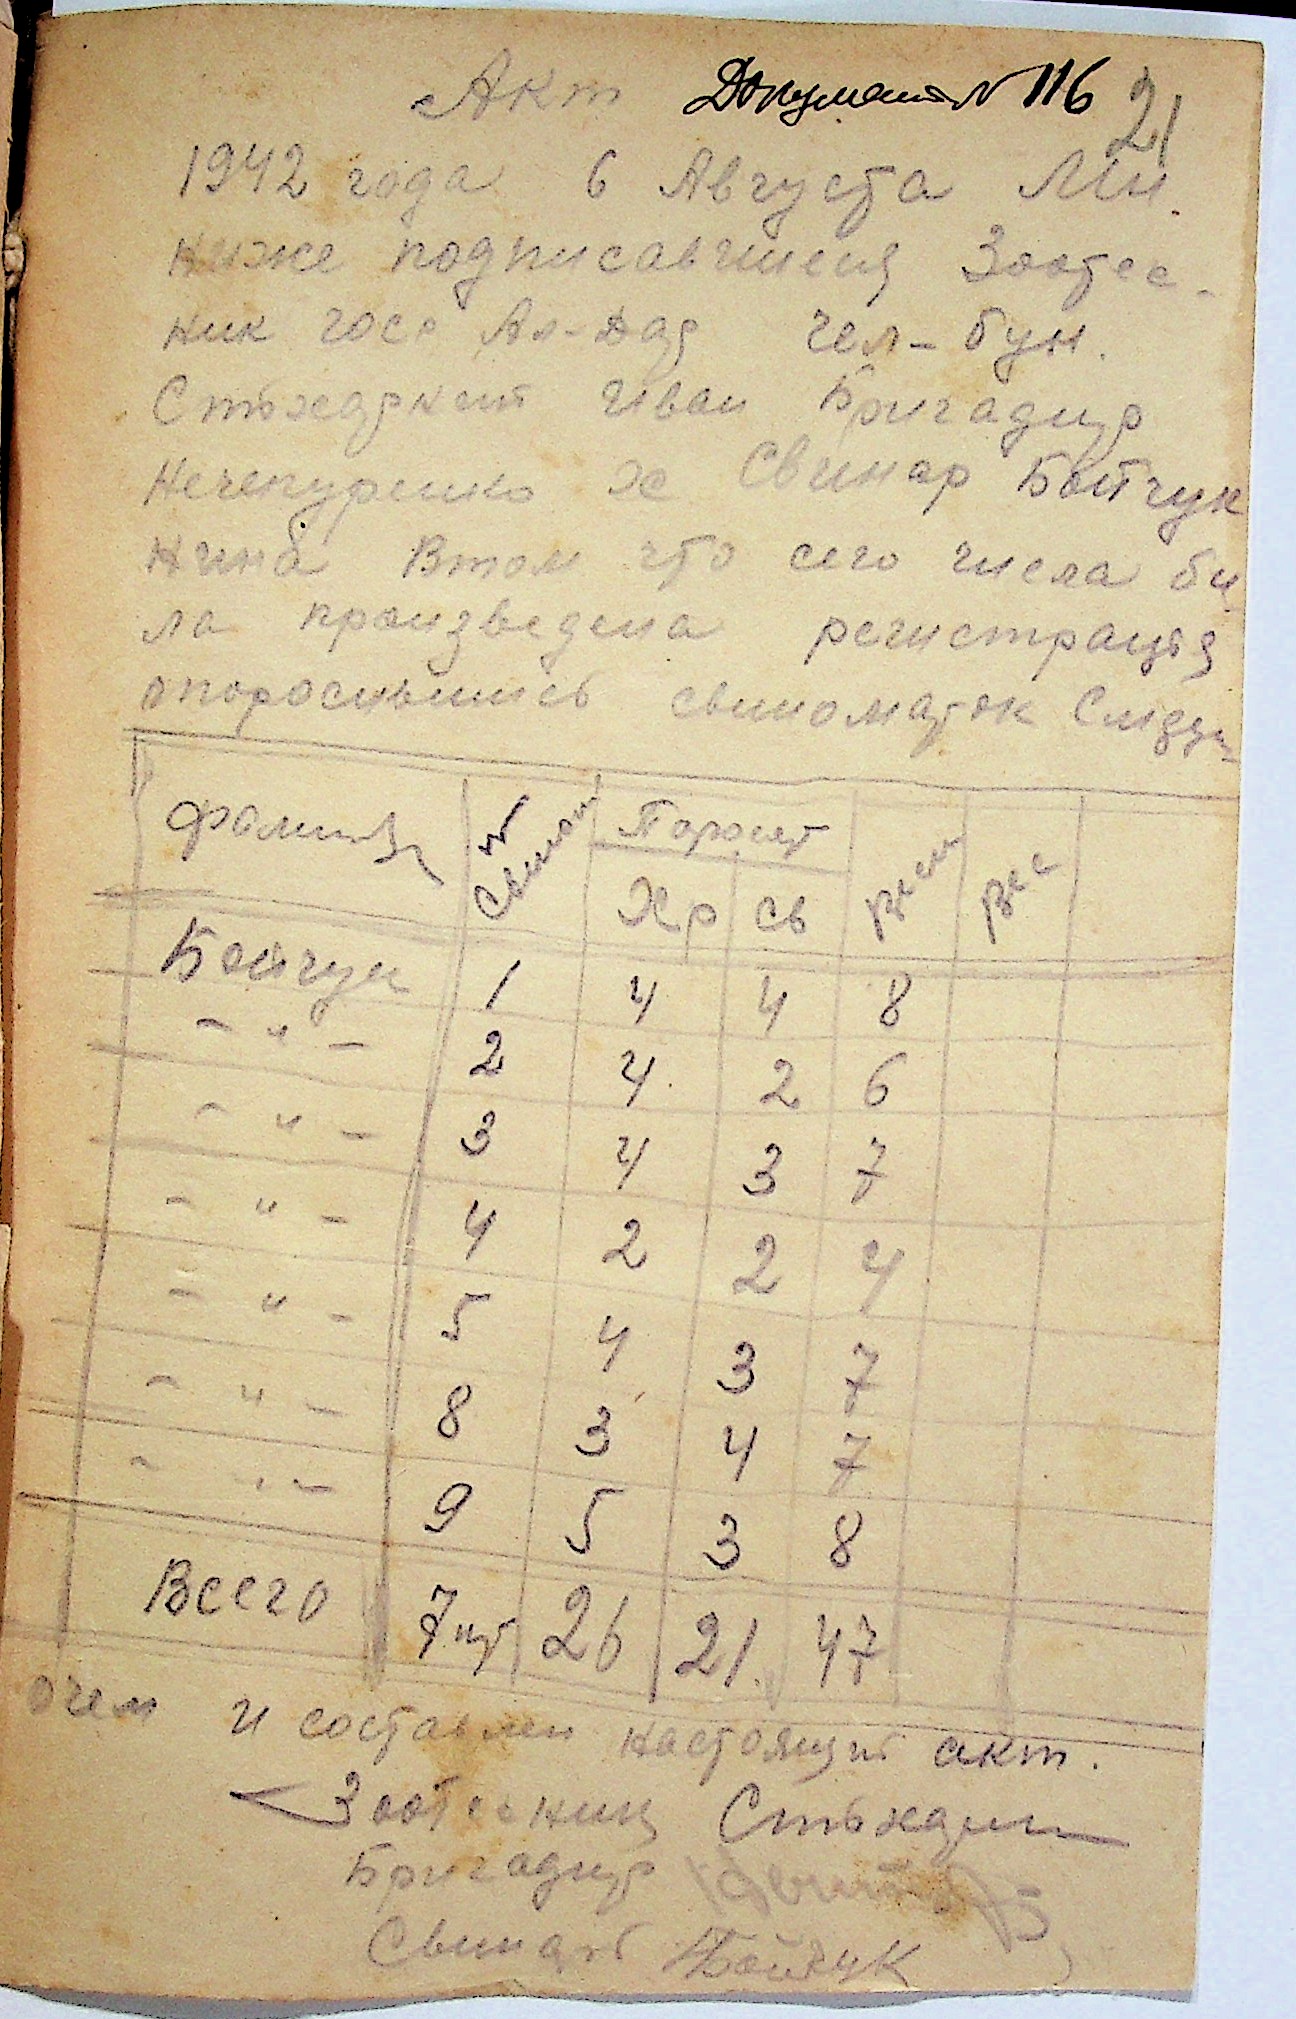 Акт Документ № 116 21
1942 года 6 Августа Мы
ниже подписавшиеся Зоотех-
ник госс Ал-Дар Чел-бун.
Иван Бригадир
Нечепуренко Х Свинар Бойчук
Нина Втом что сего числа бы
ла произведена регистрация
опоросившись свиноматок
фамилия № Свином Поросят
Хр св всего вес
Бойчук 1 4 4 8
- " - 2 4 2 6
- " - 3 4 3 7
- " - 4 2 2 4
- " - 5 4 3 7
- " - 8 3 4 7
- " - 9 5 3 8
Всего 7 шт 26 21 47
очем и составлен настоящий акт.
Зоотехник
Бригадир
Свинар Бойчук